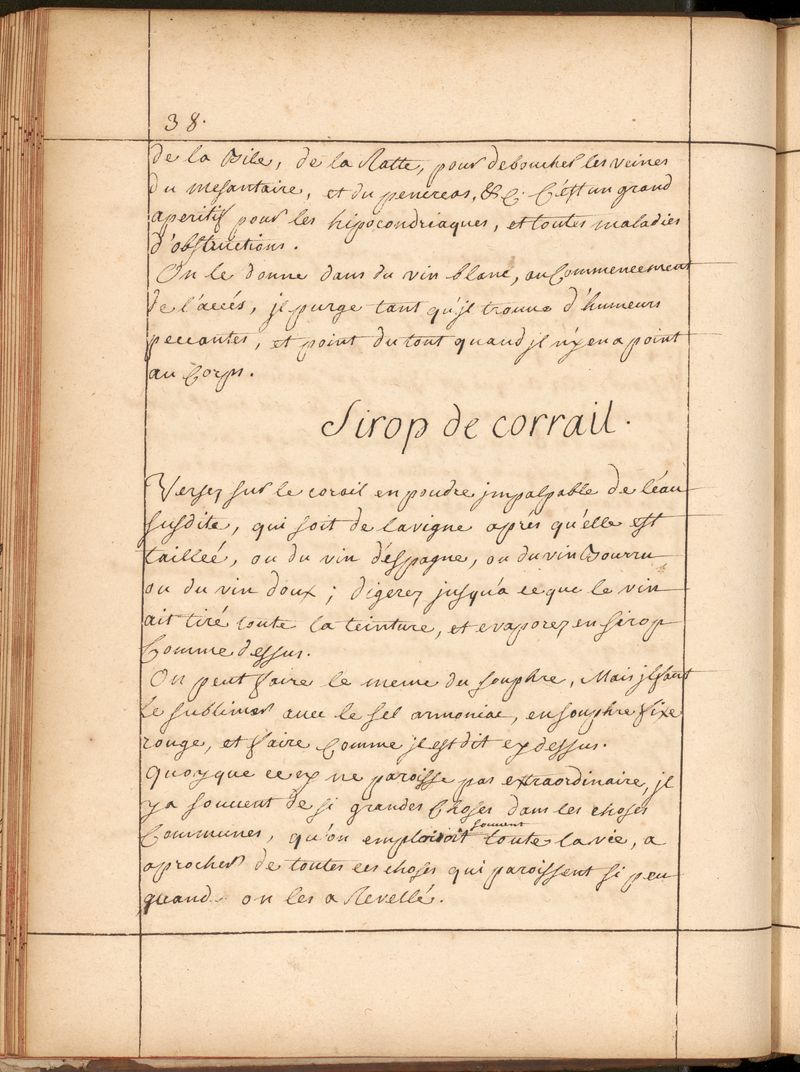 38.
de la Bile, de la Ratte, pour deboucher les veines
du mesantaire, et du pencreas, &c. C'est un grand
aperitif pour les hipocondriaques, et toutes maladies
d'obstructions.
On le donne dans du vin blanc, au Commencement
de l'accés, jl purge tant qu'jl trouve d'humeurs
peccantes, et point du tout quand jl n'y en a point
au Corps.
Sirop de corrail.
Versez sur le corail en poudre jmpalpable de l'eau
susdite, qui soit de la vigne aprés qu'elle est
tailleé, ou du vin d'Espagne, ou du vin Bourru
ou du vin doux; digerez jusqu'a ce que le vin
ait tiré toute la teinture, et evaporez en sirop
Comme dessus.
On peut faire le meme du souphre, Mais jl faut
le sublimer avec le sel armoniac, en souphre fixe
rouge, et faire Comme jl est dit cy dessus.
Quoyque cecy ne paroisse pas extraordinaire, jl
y a souvent de si grandes Choses dans les choses
Communes, qu'on emploiroit souvent toute la vie, a
aprocher de toutes ces choses qui paroissent si peu
quand on les a Revellé.